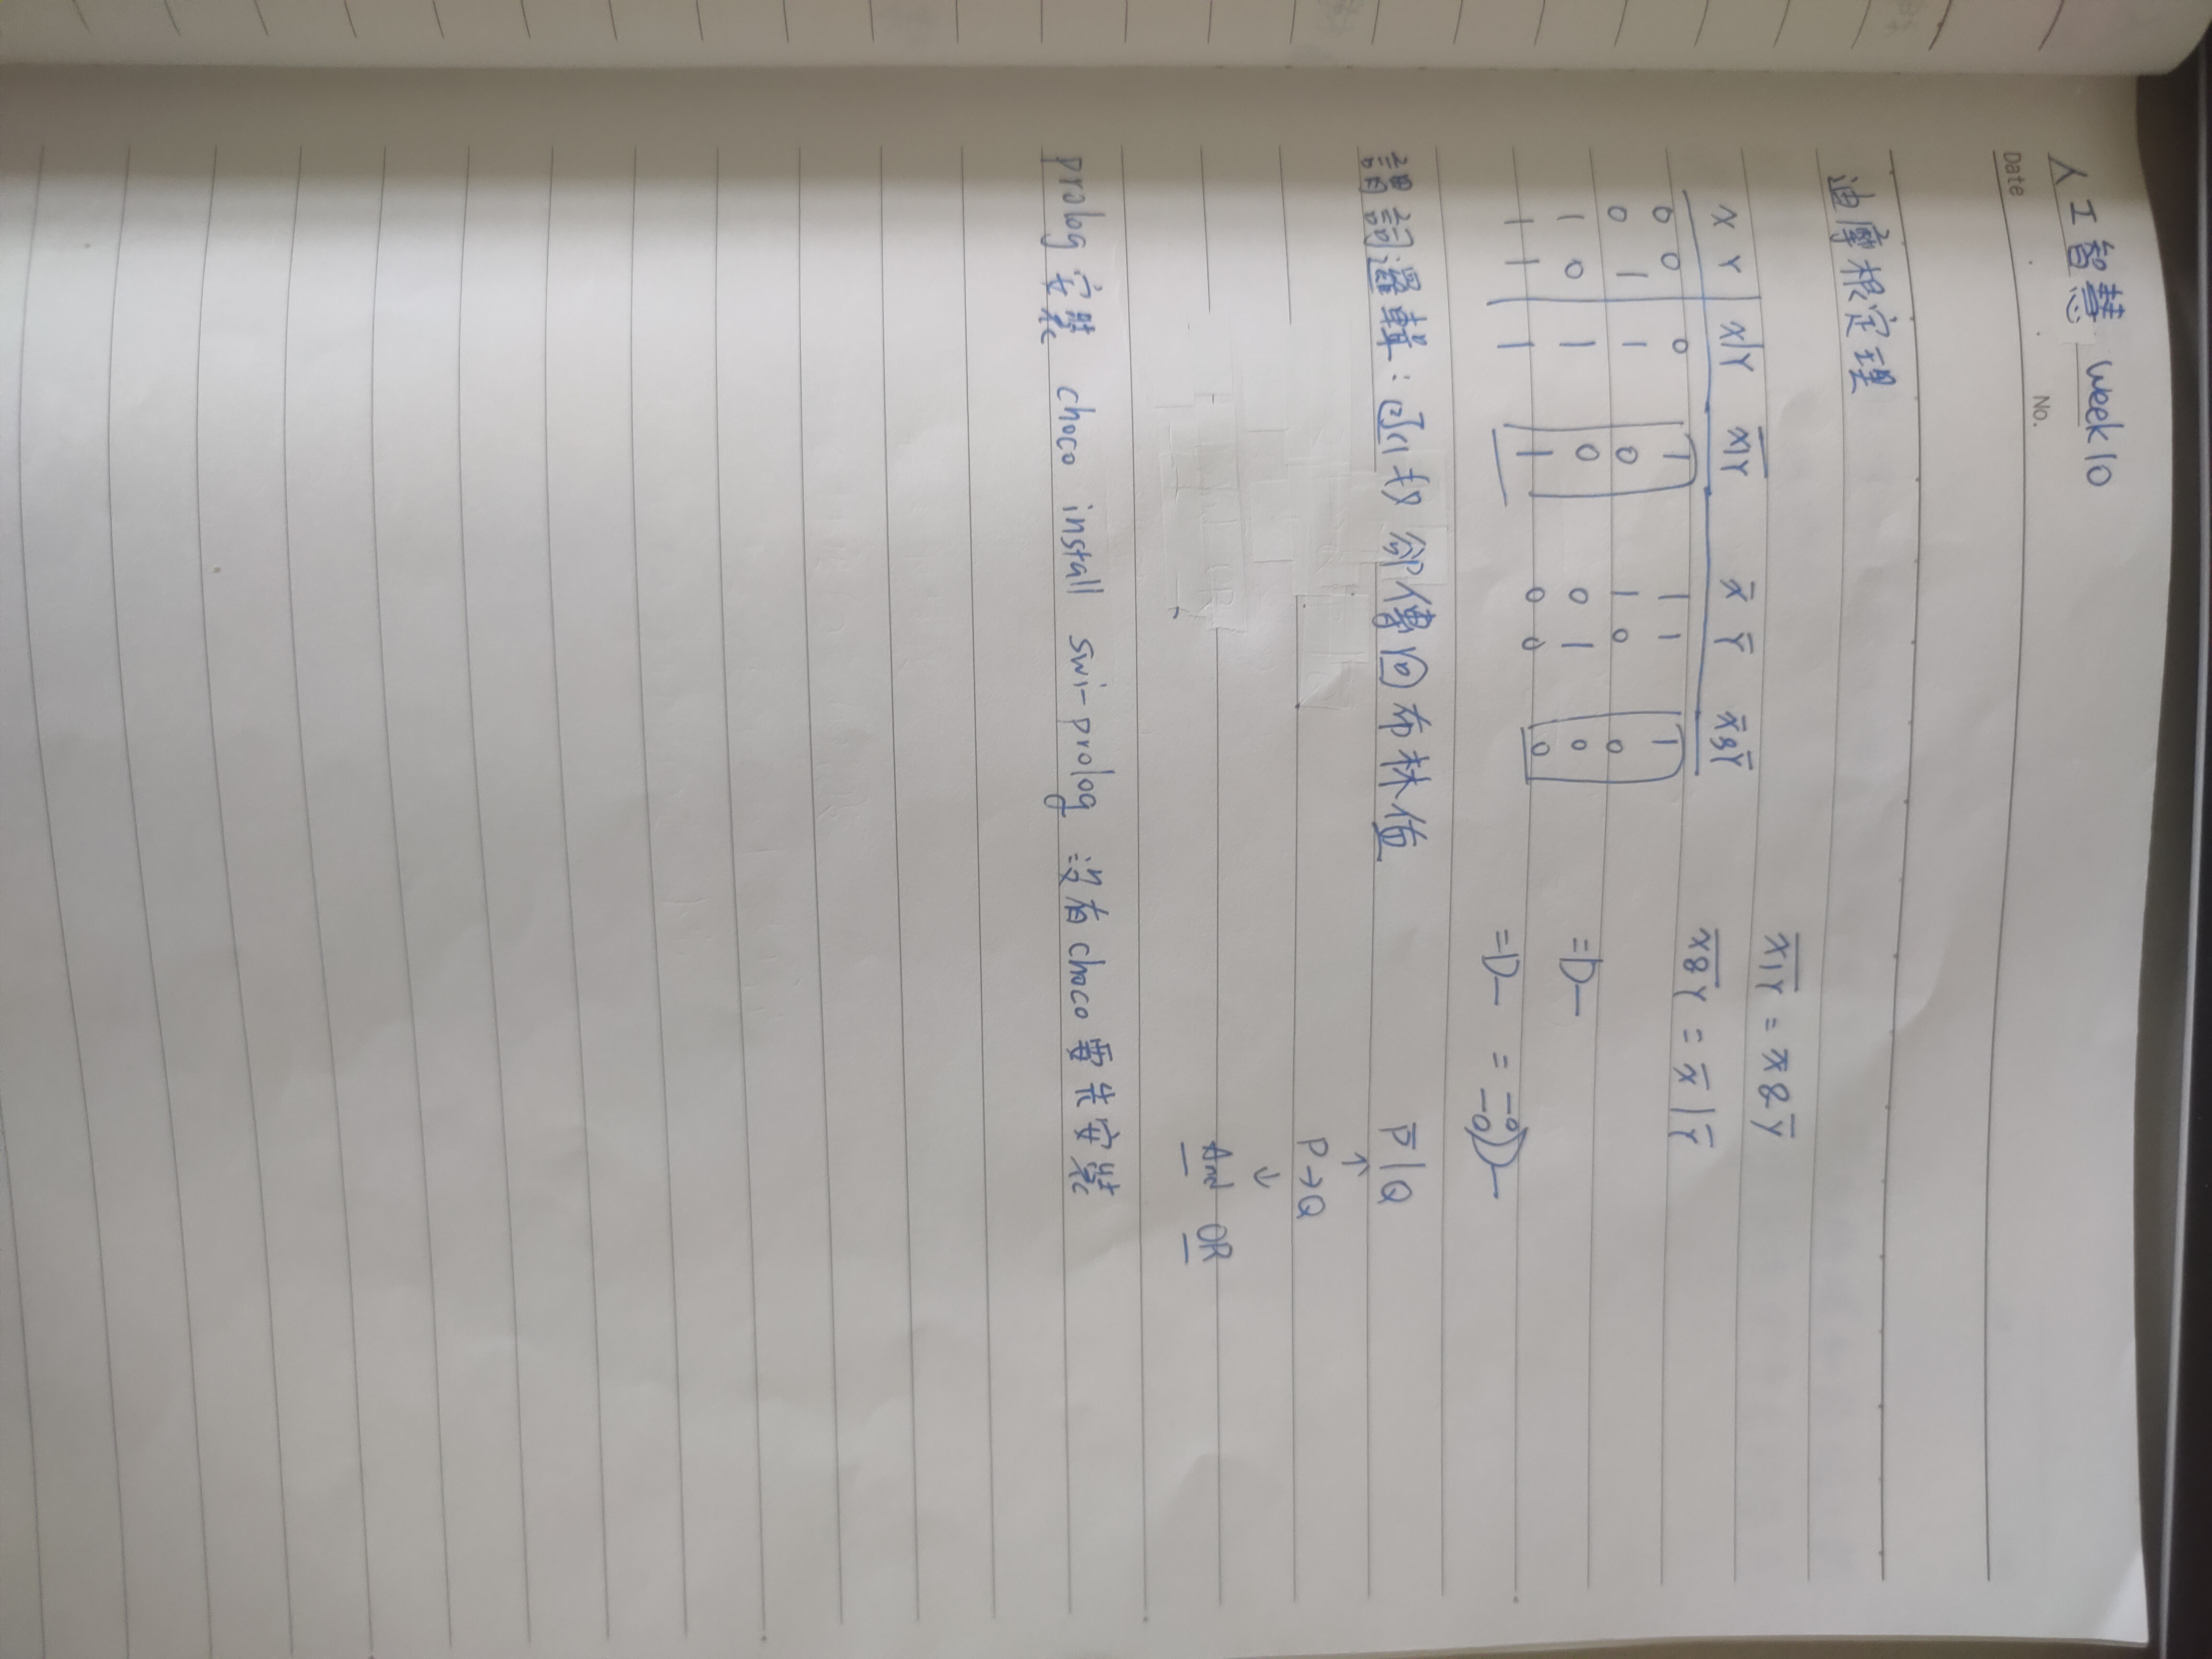 人工智慧 week10
Date No.
迪摩根定理
X Y X|Y X̅|̅Y̅ X̅ Y̅ X̅&Y̅
0 0 0 1 1 1 1
0 1 1 0 1 0 0
1 0 1 0 0 1 0
1 1 1 1 0 0 0
X̅|̅Y̅ = X̅&Y̅
X̅&̅Y = X̅|Y̅
=
= =
謂詞邏輯: 函數 卻傳回布林值
P̅|Q
↑
P→Q
↓
And OR
prolog 安裝 choco install swi-prolog 沒有choco要先安裝